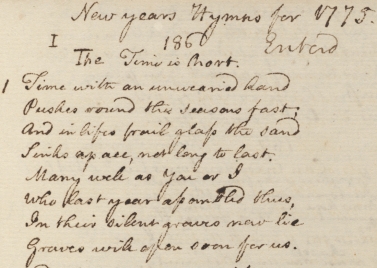 New years Hymns for 1773.
I 186 Enterd
The Time is Short.
1 Time with an unwearied hand
Pushes round the seasons past;
And in lifes frail glass the sand
Sinks apace, not long to last.
Many well as You or I
Who last year assembled thus,
In their silent graves now lie
Graves will open soon for us.